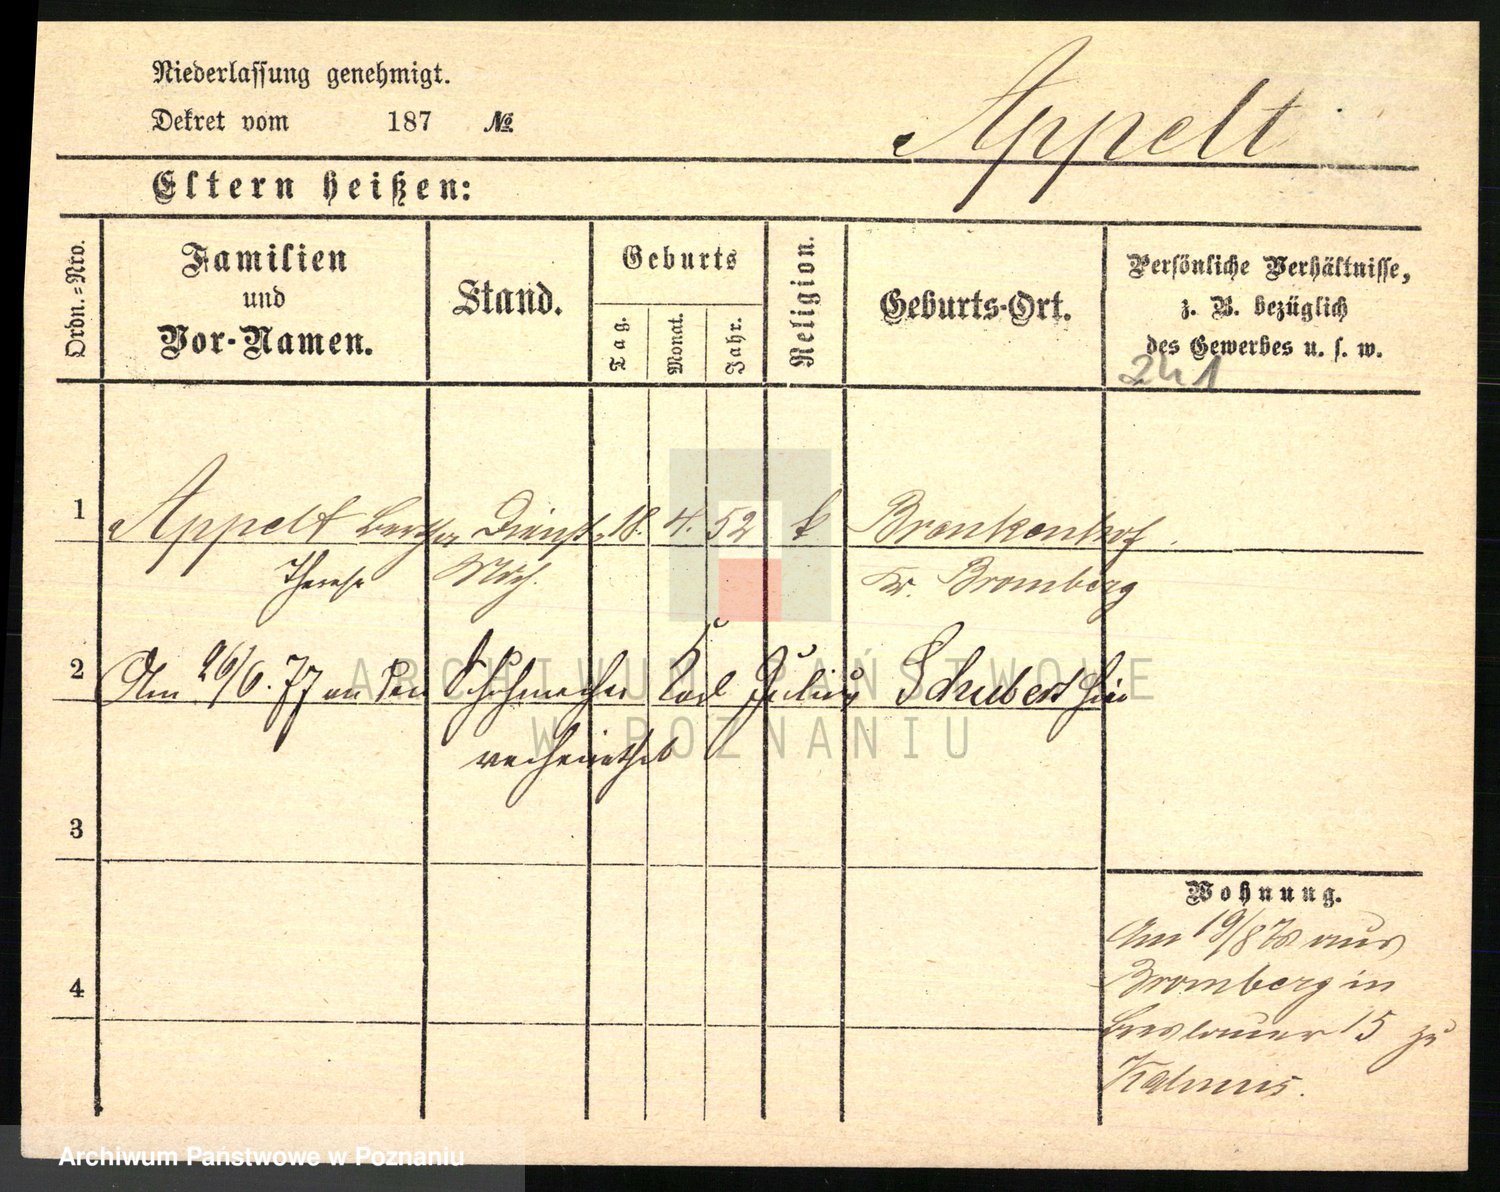 Niederlassung genehmigt.
Dekret vom 187 №
Appelt
Eltern heißen:
Ordn.-Nro.
Familien
und
Vor-Namen.
Stand.
Geburts
Tag.
Monat.
Jahr.
Religion.
Geburts-Ort.
Persönliche Verhältnisse,
z. B. bezüglich
des Gewerbes u. s. w.
241
1 Appelt Bertha Dienst- 18. 4. 52 k Brenkenhof
Therese Mdch. Kr. Bromberg
2 Am 26/6. 77 an den Schuhmacher Carl Julius Schubert hier
verheirathet
3
4
Wohnung.
Am 19/8 76 aus
Bromberg in
Breslauer 15 zu
Kalmus.
ARCHIWUM PAŃSTWOWE
W POZNANIU
Archiwum Państwowe w Poznaniu